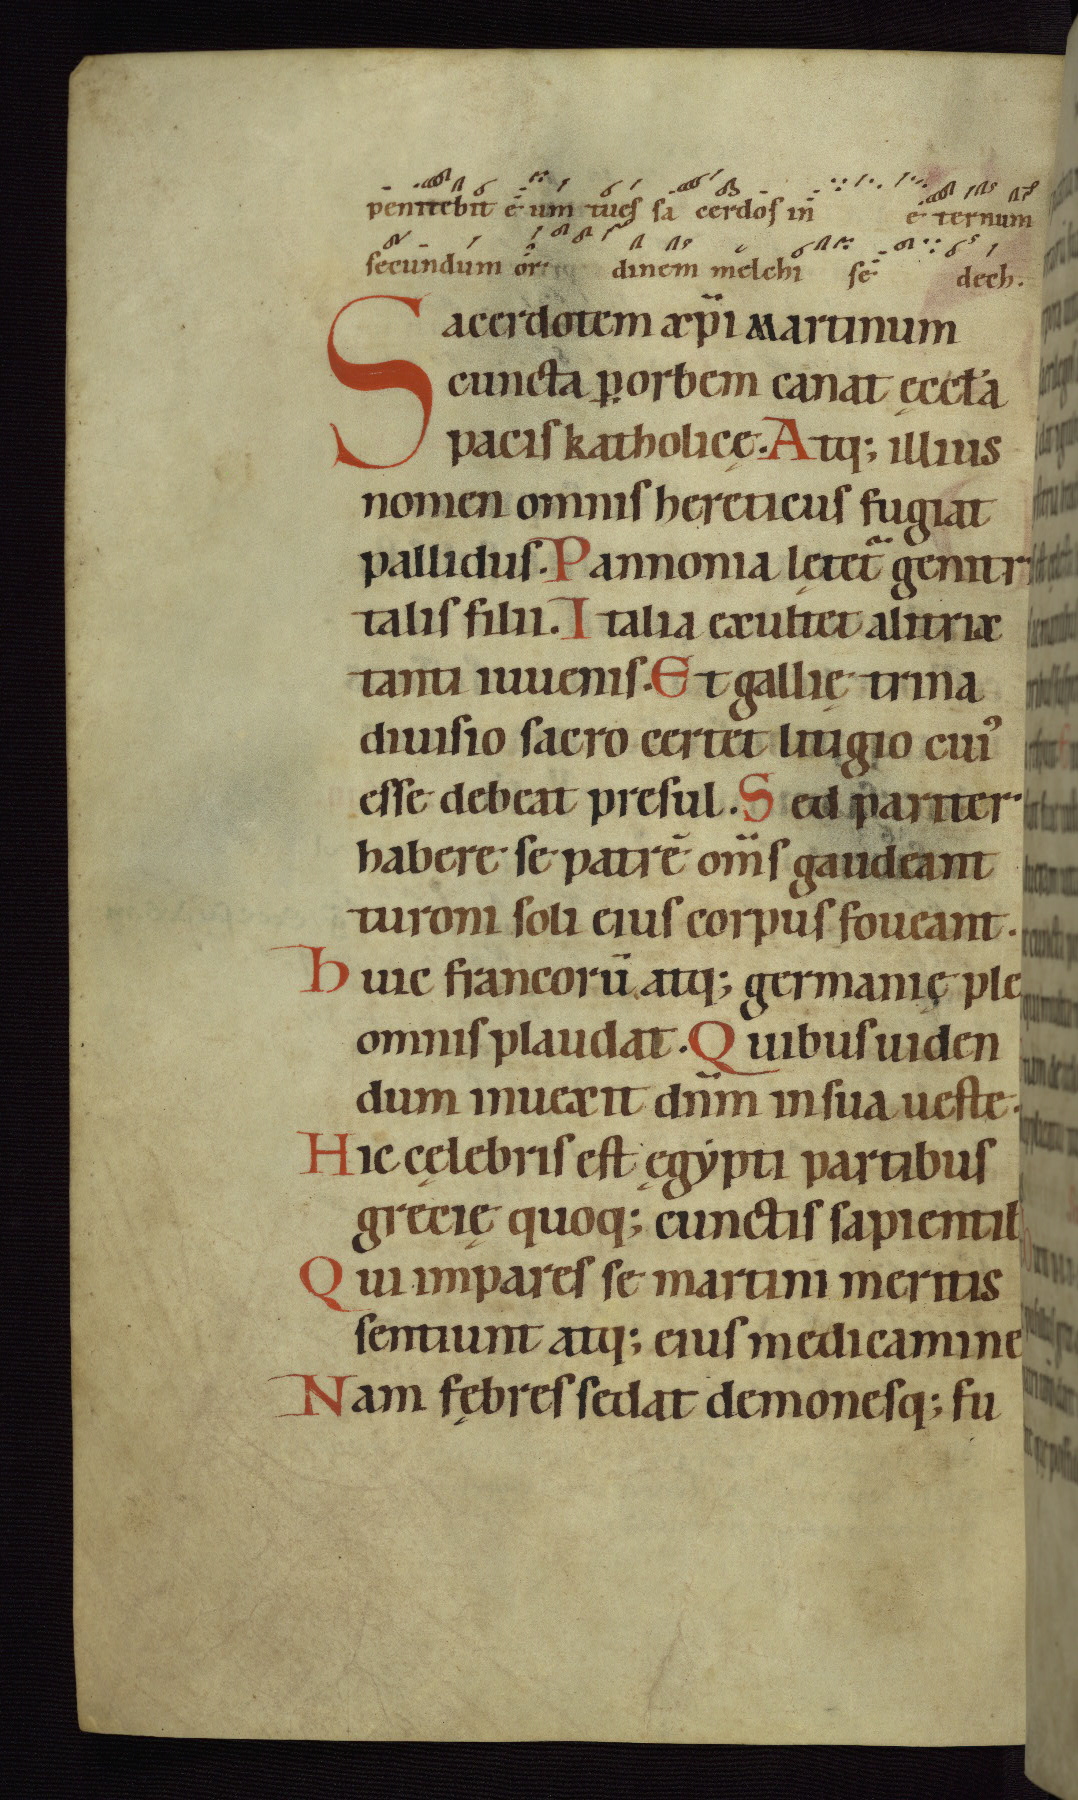 penitebit eum tu es sa cerdos in e ternum
secundum or dinem melchi se dech.
Sacerdotem xp̄i Martinum
cuncta ꝑ orbem canat ęccł'a
pacis katholicę. Atq; illius
nomen omnis hereticus fugiat
pallidus. Pannonia lętet᷑ genitr
talis filii. Italia exultet alitrix
tanti iuuenis. Et gallię trina
diuisio sacro certet litigio cui᾽
esse debeat presul. Sed pariter
habere se patrē om̄s gaudeant
turoni soli eius corpus foueant.
huic francorū atq; germanię ple
omnis plaudat. Quibus uiden
dum inuexit dn̄m in sua ueste.
Hic cęlebris est ęgẏpti partibus
gręcię quoq; cunctis sapientib
Qui impares se martini meritis
sentiunt atq; eius medicamine
Nam fębres sedat demonesq; fu